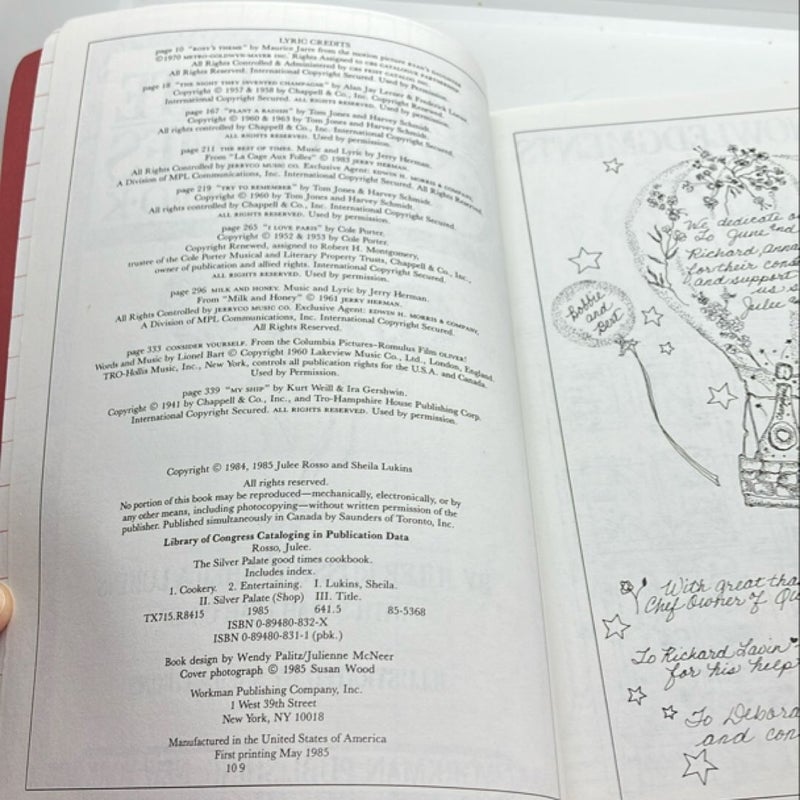 LYRIC CREDITS
page 10 "ROSY'S THEME" by Maurice Jarre from the motion picture RYAN'S DAUGHTER
©1970 METRO-GOLDWYN-MAYER INC. Rights Assigned to CBS CATALOGUE PARTNERSHIP
All Rights Controlled & Administered by CBS FEIST CATALOG INC.
All Rights Reserved. International Copyright Secured. Used by Permission.
page 18 "THE NIGHT THEY INVENTED CHAMPAGNE" by Alan Jay Lerner & Frederick Loewe
Copyright © 1957 & 1958 by Chappell & Co., Inc. Copyright Renewed.
International Copyright Secured. ALL RIGHTS RESERVED. Used by permission.
page 167 "PLANT A RADISH" by Tom Jones and Harvey Schmidt.
Copyright © 1960 & 1963 by Tom Jones and Harvey Schmidt.
All rights controlled by Chappell & Co., Inc. International Copyright Secured.
ALL RIGHTS RESERVED. Used by permission.
page 211 THE BEST OF TIMES. Music and Lyric by Jerry Herman.
From "La Cage Aux Folles" © 1983 JERRY HERMAN.
All Rights Controlled by JERRYCO MUSIC CO. Exclusive Agent: EDWIN H. MORRIS & COMPANY,
A Division of MPL Communications, Inc. International Copyright Secured. All Rights Reserved.
page 219 "TRY TO REMEMBER" by Tom Jones & Harvey Schmidt.
Copyright © 1960 by Tom Jones and Harvey Schmidt.
All rights controlled by Chappell & Co., Inc. International Copyright Secured.
ALL RIGHTS RESERVED. Used by permission.
page 265 "I LOVE PARIS" by Cole Porter.
Copyright © 1952 & 1953 by Cole Porter.
Copyright Renewed, assigned to Robert H. Montgomery,
trustee of the Cole Porter Musical and Literary Property Trusts, Chappell & Co., Inc.,
owner of publication and allied rights. International Copyright Secured.
ALL RIGHTS RESERVED. Used by permission.
page 296 MILK AND HONEY. Music and Lyric by Jerry Herman.
From "Milk and Honey" © 1961 JERRY HERMAN.
All Rights Controlled by JERRYCO MUSIC CO. Exclusive Agent: EDWIN H. MORRIS & COMPANY,
A Division of MPL Communications, Inc. International Copyright Secured.
All Rights Reserved.
page 333 CONSIDER YOURSELF. From the Columbia Pictures-Romulus Film OLIVER!
Words and Music by Lionel Bart © Copyright 1960 Lakeview Music Co., Ltd., London, England.
TRO-Hollis Music, Inc., New York, controls all publication rights for the U.S.A. and Canada.
Used by Permission.
page 339 "MY SHIP" by Kurt Weill & Ira Gershwin.
Copyright © 1941 by Chappell & Co., Inc., and Tro-Hampshire House Publishing Corp.
International Copyright Secured. ALL RIGHTS RESERVED. Used by permission.
Copyright © 1984, 1985 Julee Rosso and Sheila Lukins
All rights reserved.
No portion of this book may be reproduced—mechanically, electronically, or by
any other means, including photocopying—without written permission of the
publisher. Published simultaneously in Canada by Saunders of Toronto, Inc.
Library of Congress Cataloging in Publication Data
Rosso, Julee.
The Silver Palate good times cookbook.
Includes index.
1. Cookery. 2. Entertaining. I. Lukins, Sheila.
II. Silver Palate (Shop) III. Title.
TX715.R8415 1985 641.5 85-5368
ISBN 0-89480-832-X
ISBN 0-89480-831-1 (pbk.)
Book design by Wendy Palitz/Julienne McNeer
Cover photograph © 1985 Susan Wood
Workman Publishing Company, Inc.
1 West 39th Street
New York, NY 10018
Manufactured in the United States of America
First printing May 1985
10 9
We dedicate
To June and
Richard, Anna
for their
and support
us
Julee
Bobbie
and
Bert
With great
Chef Owner of
To Richard Lavin
for his help
To
and